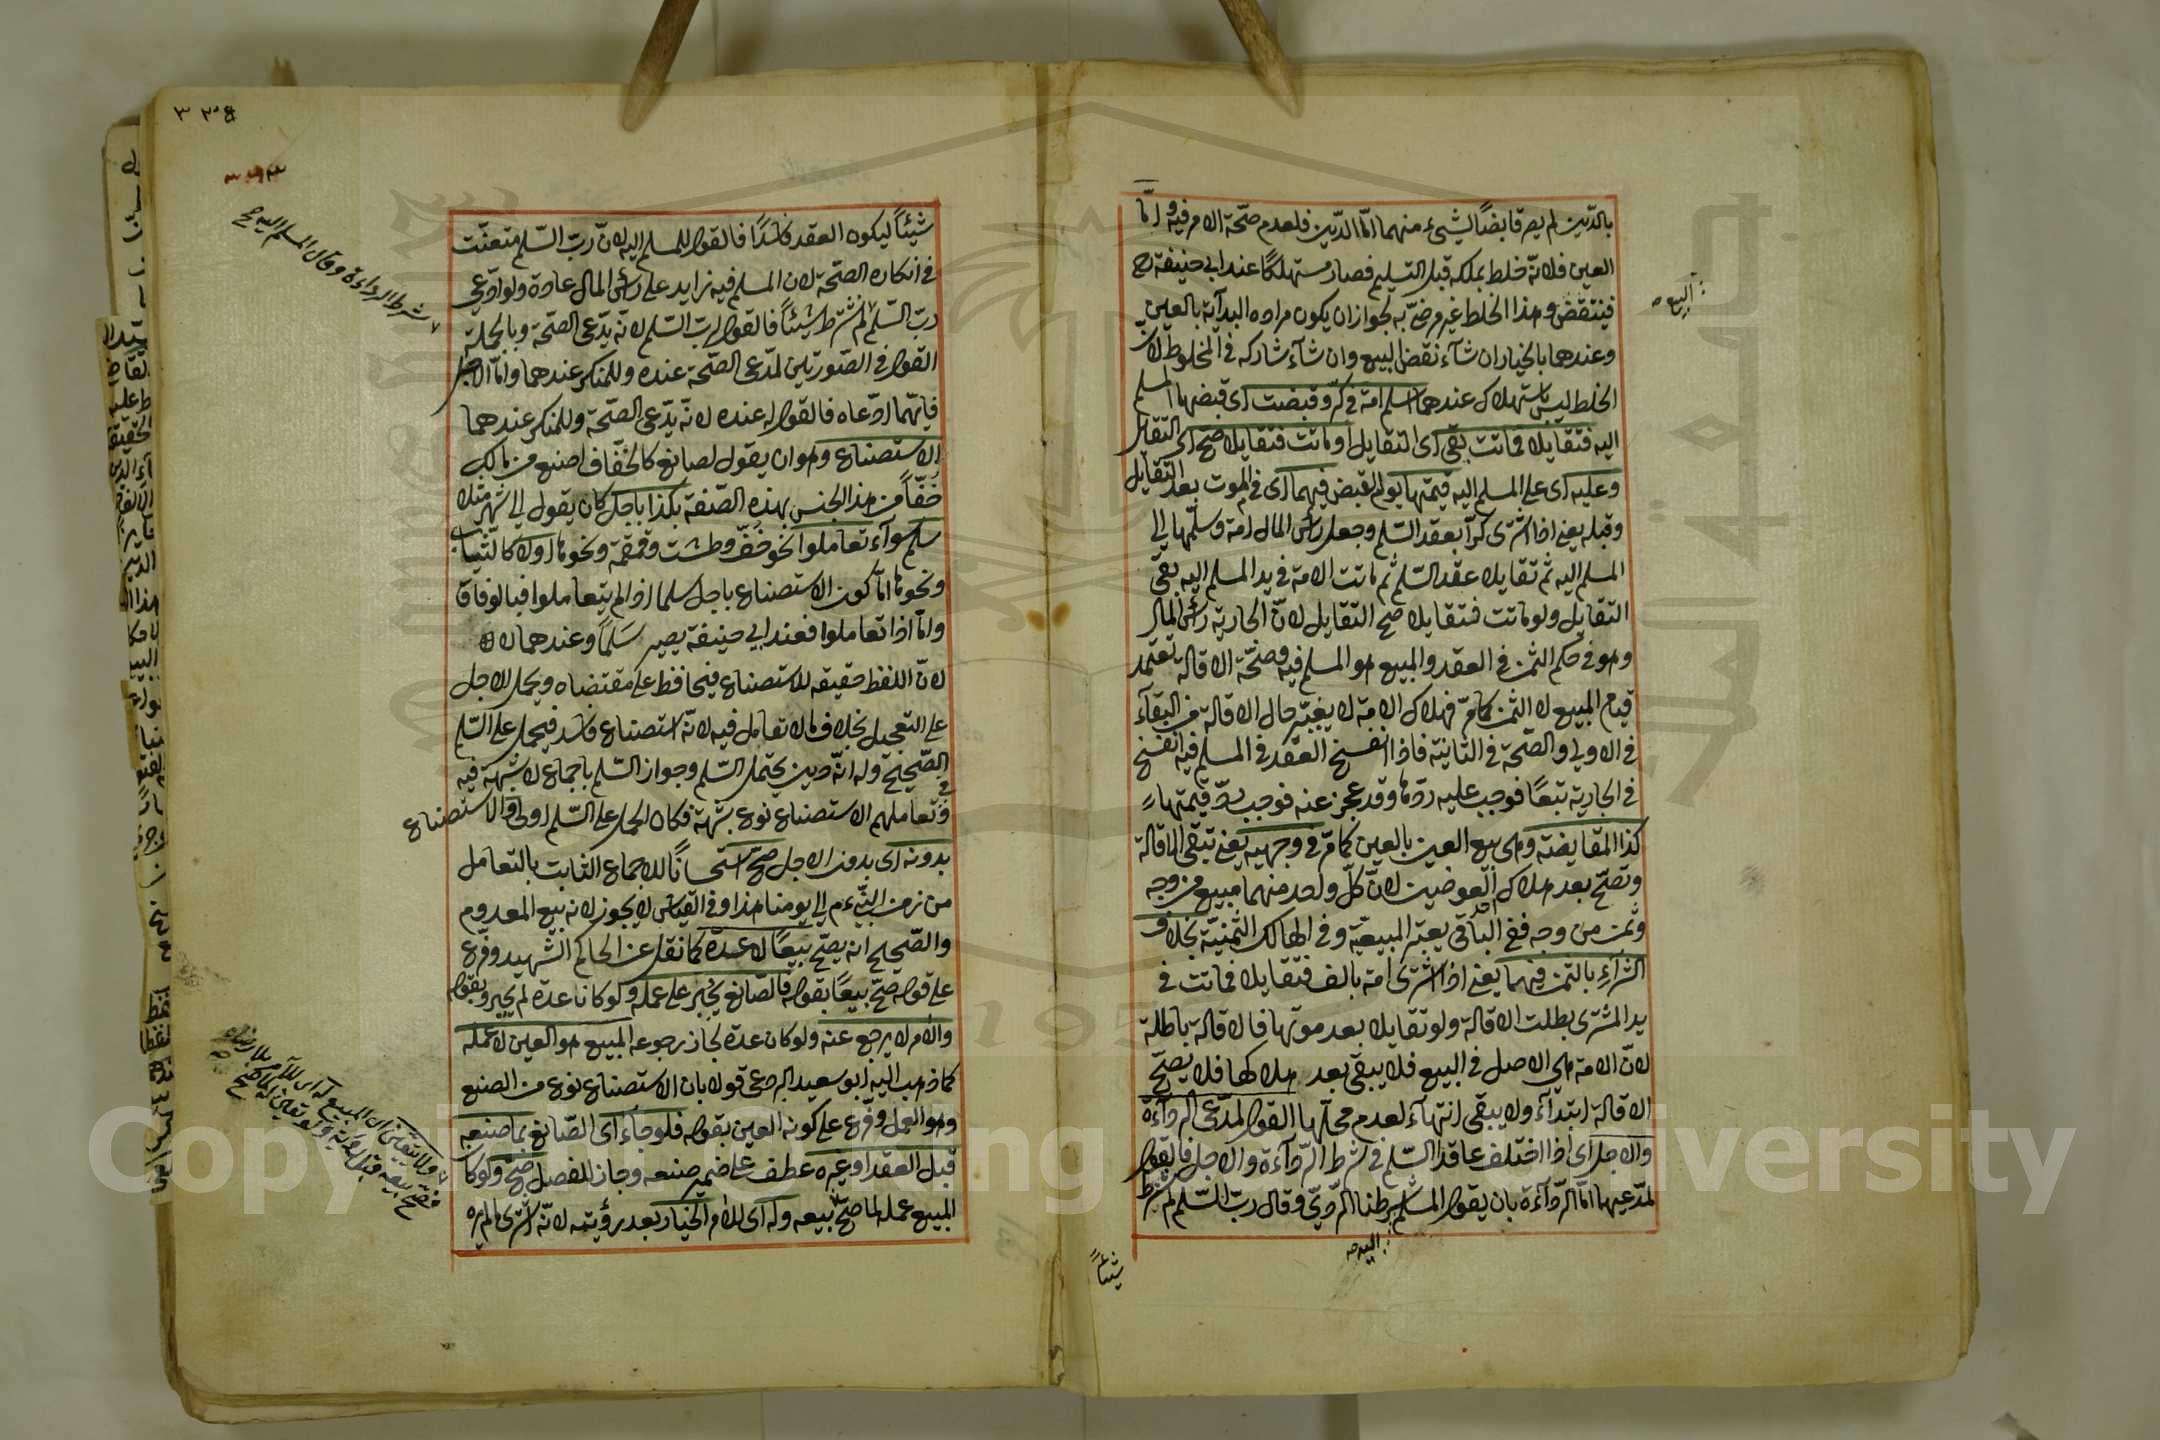 بالدّين لم يصر قابضاً لشيء منهما امّا الدّين فلعدم صحّة الامر فيه وامّا
العين فلانّه خلط بملكه قبل التسليم فصار مستهلكاً عند ابي حنيفة رح
فينتقض وهذا الخلط غير مرضىّ به لجواز ان يكون مراده البداية بالعين
وعندهما بالخيار ان شآء نقض البيع وان شآء شاركه في المخلوط لان
الخلط ليس باستهلاك عندهما اسلم امة في كرّ وقبضت اى قبضها المسلم
اليه فتقايلا فماتت بقى اى التقايل او ماتت فتقايلا صح اى التقايل
وعليه اى على المسلم اليه قيمتها يوم القبض فيهما اى في الموت بعد التقايل
وقبله يعنى اذا اشترى كرّاً بعقد السّلم وجعل رأس المال امة وسلّمها الى
المسلم اليه ثم تقايلا عقد السّلم ثم ماتت الامة في يد المسلم اليه بقى
التقايل ولو ماتت فتقايلا صح التقايل لانّ الجارية رأس المال
وهو في حكم الثمن في العقد والمبيع هو المسلم فيه وصحّة الاقالة تعتمد
قيام المبيع لا الثمن كما مرّ فهلاك الامة لا يغيّر حال الاقالة من البقآء
في الاولى والصّحة في الثانية فاذا انفسخ العقد في المسلم فيه انفسخ
في الجارية تبعًا فوجب عليه ردّها وقد عجز عنه فوجب ردّ قيمتها
كذا المقايضة وهى بيع العين بالعين كما مرّ في وجهيه يعنى تبقى الاقالة
وتصحّ بعد هلاك احد العوضين لانّ كلّ واحد منهما مبيع من وجه
وثمن من وجه ففى الباقى يعتبر المبيعيّة وفي الهالك الثمنيّة بخلاف
الشرآء بالثمن فيهما يعنى اذا اشترى امة بالف فتقايلا فماتت في
يد المشترى بطلت الاقالة ولو تقايلا بعد موتها فالاقالة باطلة
لانّ الامة هى الاصل في البيع فلا يبقى بعد هلاكها فلا يصحّ
الاقالة ابتدآء ولا يبقى انتهآء لعدم محلّها القول لمدّعى الردآءة
والاجل اى اذا اختلف عاقدا السّلم في شرط الردآءة والاجل فالقول
لمدّعيهما امّا الردآءة بان يقول المسلم شرطنا الردىّ وقال ربّ السّلم لم نشترط
اليه صح
شيئاً
شيئاً ليكون العقد فاسدًا فالقول للمسلم اليه لانّ ربّ السّلم متعنّت
في انكاره الصّحة لان المسلم فيه زايد على رأس المال عادة ولو ادّعى
ربّ السّلم لم نشترط شيئاً فالقول لربّ السّلم لانّه يدّعى الصّحة وبالجملة
القول في الصّورتين لمدّعى الصّحة عنده وللمنكر عندهما وامّا الاجل
فايّهما ادّعاه فالقول له عنده لانّه يدّعى الصّحة وللمنكر عندهما
الاستصناع وهو ان يقول لصانع كالخفّاف اصنع من مالك
خفّاً من هذا الجنس بهذه الصّفة بكذا باجل كان يقول الى شهر مثلا
سلم سوآء تعاملوا نحو خفّ وطشت وقمقمة ونحوها او لا كالثياب
ونحوها امّا كون الاستصناع باجل سلما اذا لم يتعاملوا فبالوفاق
وامّا اذا تعاملوا فعند ابي حنيفة يصير سَلَماً وعندهما لا
لانّ اللفظ حقيقة للاستصناع فيحافظ على مقتضاه ويحمل الاجل
على التعجيل بخلاف ما لا تعامل فيه لانّه استصناع فاسد فيحمل على السّلم
الصّحيح وله انّه دين يحتمل السّلم وجواز السّلم باجماع لا شبهة فيه
وفي تعاملهم الاستصناع نوع شبهة فكان الحمل على السّلم اولى والاستصناع
بدونه اى بدون الاجل صحّ استحسانًا للاجماع الثابت بالتعامل
من زمن النّبىّ ءم الى يومنا هذا وفي القياس لا يجوز لانه بيع المعدوم
والصّحيح انه يصحّ بيعًا لا عدة كما نقل عن الحاكم الشّهيد وفرّع
على قوله صحّ بيعًا بقوله فالصّانع يجبر على عمله ولو كانا عدة لم يجبر وبقوله
والآمر لا يرجع عنه ولو كان عدة لجاز رجوعه المبيع هو العين لا عمله
كما ذهب اليه ابو سعيد البردعى قولا بان الاستصناع نوع من الصنع
وهو العمل وفرّع على كونه العين بقوله فلو جآء اى الصّانع بما صنعه
قبل العقد او غيره عطف على ضمير صنعه وجاز للفصل صحّ ولو كان
المبيع عمله لما صحّ بيعه وله اى للآمر الخيار بعد رؤيته لانّه اشترى ما لم يره
شرط الرداءة وقال المسلم اليه صح